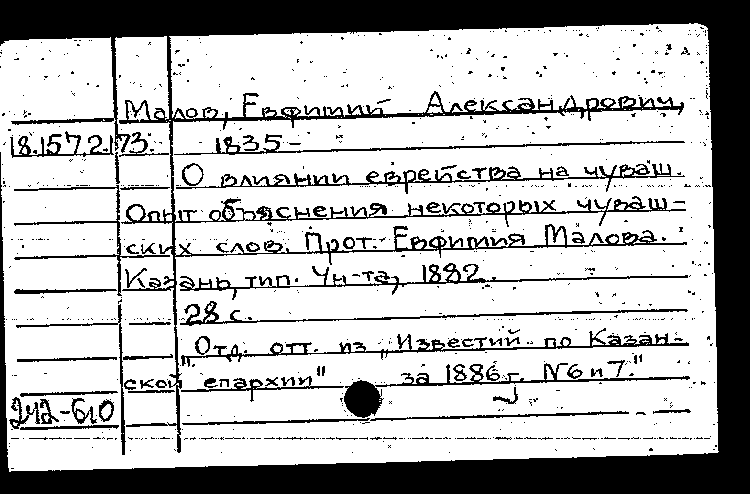 Малов, Евфимий Александрович,
18.157.2.173. 1835 –
О влиянии еврейства на чуваш.
Опыт объяснения некоторых чуваш-
ских слов. Прот. Евфимия Малова.
Казань, тип. Ун-та, 1882.
28 с.
"Отд. отт. из „Известий по Казан-
ской епархии" за 1886 г. N6 и 7."
242-610